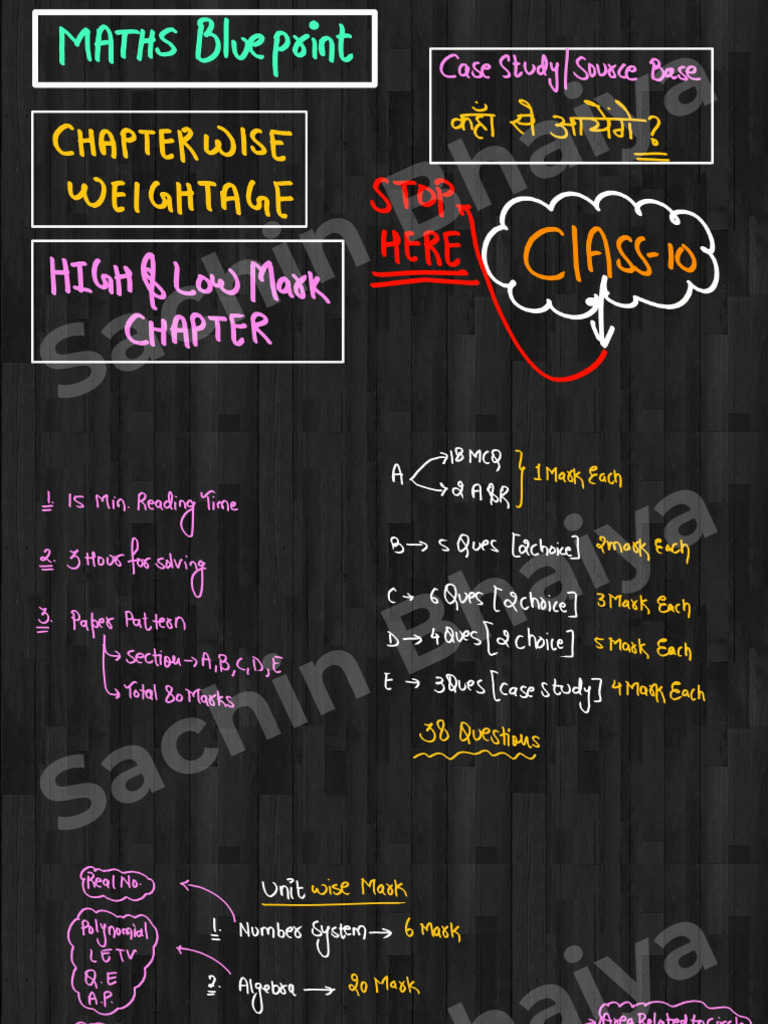 MATHS Blueprint
CHAPTERWISE
WEIGHTAGE
HIGH & Low Mark
CHAPTER
Case Study/Source Base
कहाँ से आयेंगे ?
STOP
HERE
ClASS-10
1. 15 Min. Reading Time
2. 3 Hour for solving
3. Paper Pattern
Section → A, B, C, D, E
Total 80 Marks
A → 18 MCQ
→ 2 A&R
1 Mark Each
B → 5 Ques [2 choice] 2 mark Each
C → 6 Ques [2 choice] 3 Mark Each
D → 4 Ques [2 choice] 5 Mark Each
E → 3 Ques [case study] 4 Mark Each
38 Questions
Unit wise Mark
Real No.
1. Number System → 6 Mark
Polynomial
LETV
Q.E
A.P.
2. Algebra → 20 Mark
Area Related to Circle
Sachin Bhaiya
Sachin Bhaiya
Sachin Bhaiya